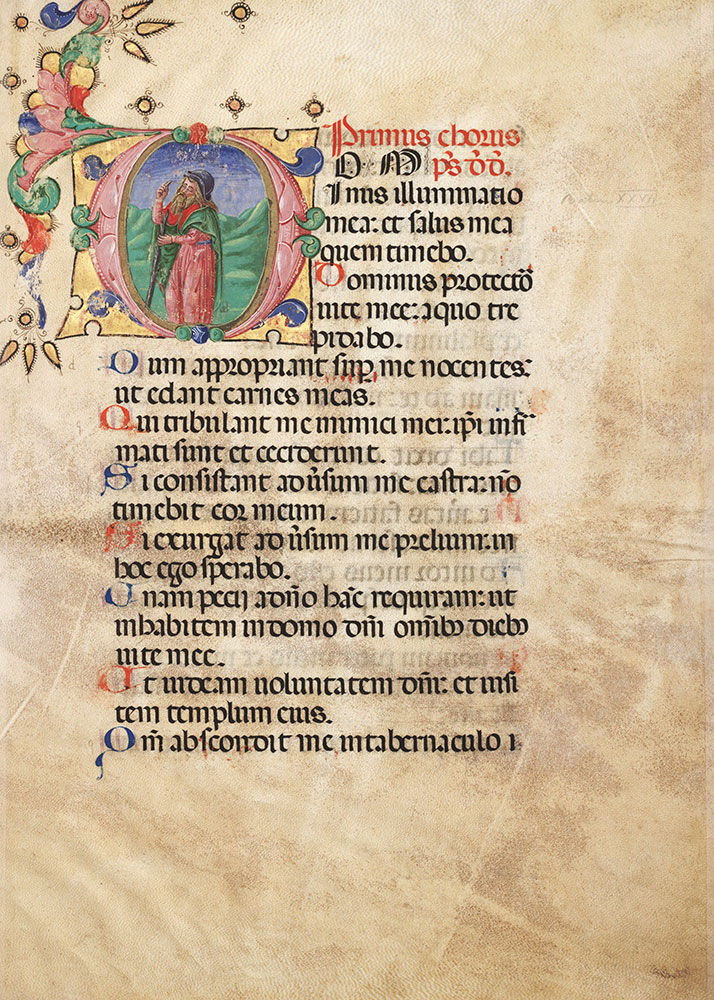 Primus chorus
O M p̄s d̄d̄.
inus illuminatio
mea: et salus mea
quem timebo.
Dominus protectō
uite mee: a quo tre
pidabo.
Dum appropiant sup̱ me nocentes:
ut edant carnes meas.
Qui tribulant me inimici mei: ip̄i infi
mati sunt et ceciderunt.
Si consistant adūsum me castra: nō
timebit cor meum.
Si exurgat adūsum me prelium: in
hoc ego sperabo.
Unam pecij a dn̄o hāc requiram: ut
inhabitem in domo dn̄i om̄ib; dieb;
uite mee.
Ut uideam uoluntatem dn̄i: et uisi
tem templum eius.
Qm̄ abscondit me in tabernaculo i